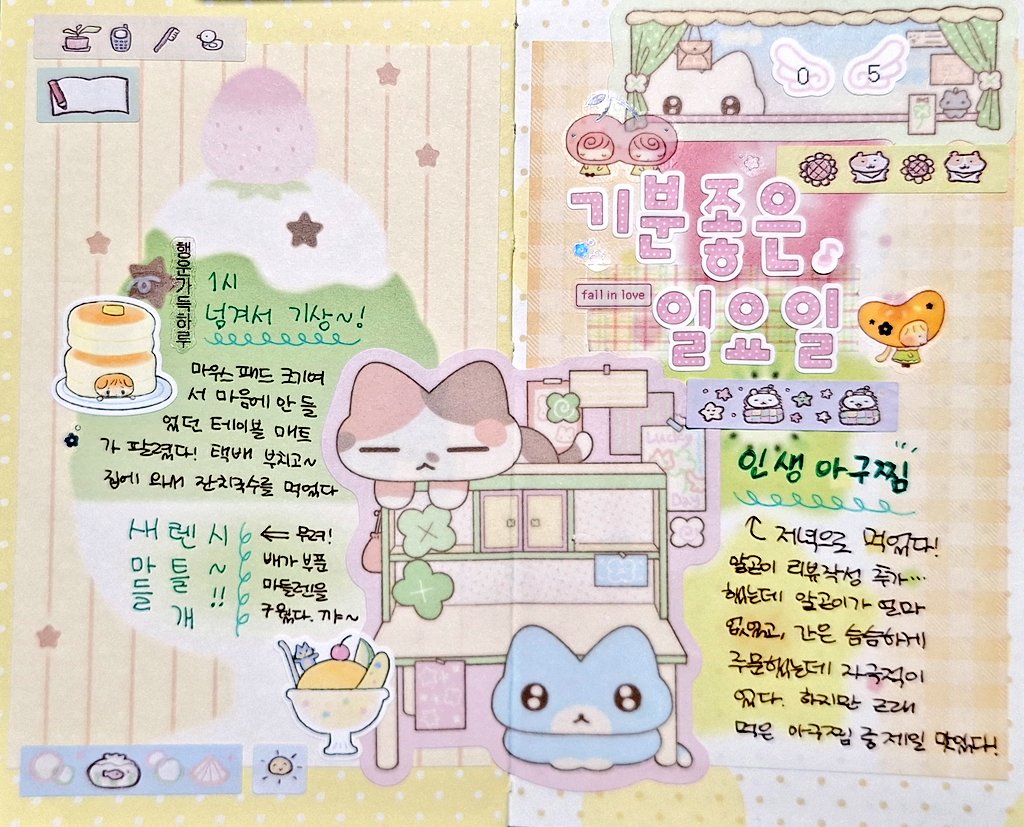 행운가득하루
1시
넘겨서 기상~!
마우스 패드 크기여
서 마음에 안 들
었던 테이블 매트
가 팔렸다! 택배 부치고~
집에 와서 잔치국수를 먹었다
새마들
렌틀개
시~!!
← 무려!
배가 부푼
마들렌을
구웠다. 꺄~
0 5
기분좋은
fall in love
일요일
Lucky
Day
인생 아구찜
저녁으로 먹었다!
알곤이 리뷰작성 추가...
했는데 알곤이가 얼마
없었고, 간은 슴슴하게
주문했는데 자극적이
었다. 하지만 근래
먹은 아구찜 중 제일 맛있다!